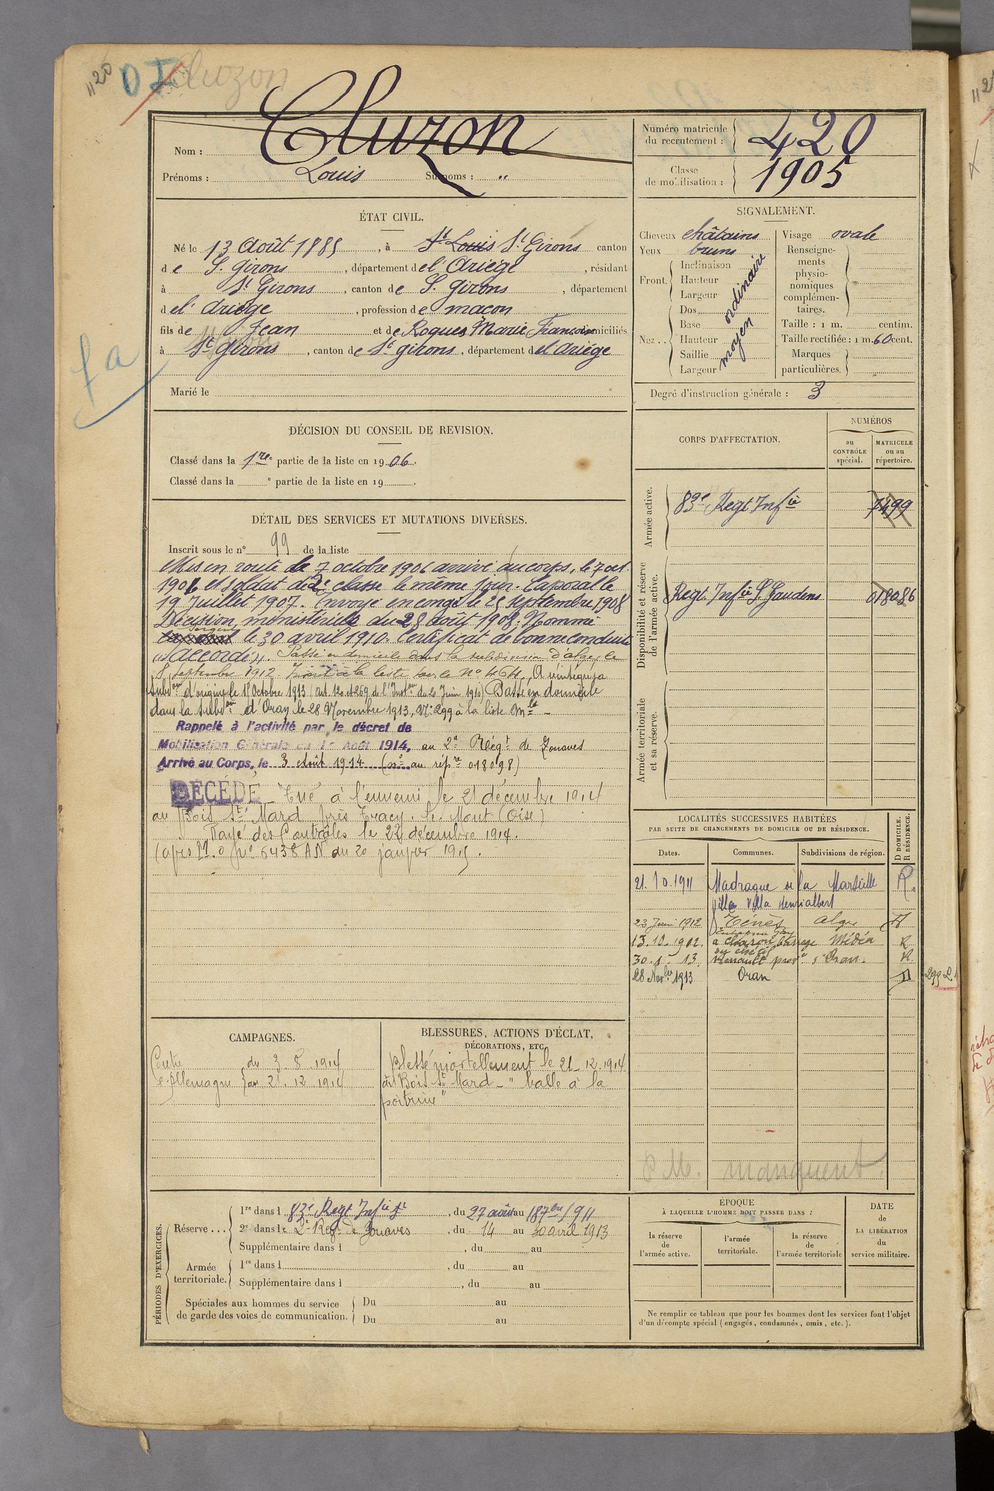 Cluzon
Nom : Cluzon
Prénoms : Louis Surnoms : "
Numéro matricule du recrutement : 420
Classe de mobilisation : 1905
ÉTAT CIVIL.
Né le 13 Août 1885, à St Louis St Girons canton
de S. Girons, département de l'Ariège, résidant
à St Girons, canton de S. Girons, département
de l'Ariège, profession de maçon
fils de Jean et de Roques Marie Françoise domiciliés
à St Girons, canton de St Girons, département de l'Ariège
Marié le
SIGNALEMENT.
Cheveux châtains Visage ovale
Yeux bruns
Front. Inclinaison Hauteur Largeur ordinaire
Nez.. Dos Base Hauteur Saillie Largeur moyen
Renseignements physionomiques complémentaires.
Taille : 1 m. centim.
Taille rectifiée : 1 m. 60 cent.
Marques particulières.
Degré d'instruction générale : 3
DÉCISION DU CONSEIL DE REVISION.
Classé dans la 1re partie de la liste en 1906.
Classé dans la " partie de la liste en 19
DÉTAIL DES SERVICES ET MUTATIONS DIVERSES.
Inscrit sous le n° 99 de la liste
Mis en route le 7 octobre 1906 arrivé au corps, le 7 oct.
1906 et soldat de 2e classe le même jour. Caporal le
19 Juillet 1907. Envoyé en congé le 28 Septembre 1908
Décision ministérielle du 28 août 1908. Nommé
Sergent le 30 avril 1910. Certificat de bonne conduite
"accordé". Passé en domicile dans la subdivision d'alger le
8 septembre 1912 la liste sur le N° 464, A réintégré sa
subon d'origine le 1r Octobre 1913 (art. 120 et 269 de l'Inston du 20 Juin 1910) Passé en domicile
dans la subdon d'Oran le 28 Novembre 1913, N° 299 à la liste Mle -
Rappelé à l'activité par le décret de
Mobilisation Générale du 1er Août 1914, au 2e Régt de Zouaves
Arrivé au Corps, le 3 Août 1914 (n° au répre 018098)
DÉCÉDÉ "Tué" à l'ennemi le 21 décembre 1914
au Bois St Mard près Tracy-le-Mont (Oise)
Rayé des Contrôles le 22 décembre 1914.
6438 AD du 20 janvier 1915.
CORPS D'AFFECTATION.
NUMÉROS
au CONTRÔLE spécial.
MATRICULE ou au répertoire.
Armée active.
83e Régt Infie 7499
Disponibilité et réserve de l'armée active.
Régt Infie S. Gaudens 018086
Armée territoriale et sa réserve.
LOCALITÉS SUCCESSIVES HABITÉES
PAR SUITE DE CHANGEMENTS DE DOMICILE OU DE RÉSIDENCE.
Dates. Communes. Subdivisions de région. D DOMICILE. R RÉSIDENCE.
21.10.1911 Madrague de la Marseille R.
Villa Henri albert
23 Juin 1912 Ténès Alger
13.10.1912 a Charon barrage Médéa R
30.1.13 Oran. R.
28 Nov 1913 Oran D
CAMPAGNES.
Contre du 3 8 1914
l'Allemagne au 21.12.1914
BLESSURES, ACTIONS D'ÉCLAT,
DÉCORATIONS, ETC.
Blessé mortellement le 21.12.1914
au Bois St Mard - "balle à la
poitrine"
manquent
PÉRIODES D'EXERCICES.
Réserve... 1re dans le 83e Régt Infie, du 27 août au 18 7bre 1911
2e dans le 2e Régt de Zouaves, du 14 au 30 avril 1913
Supplémentaire dans l , du au
Armée territoriale. 1re dans l , du au
Supplémentaire dans l , du au
Spéciales aux hommes du service de garde des voies de communication. Du au
Du au
ÉPOQUE
À LAQUELLE L'HOMME DOIT PASSER DANS :
la réserve de l'armée active.
l'armée territoriale.
la réserve de l'armée territoriale
DATE de LA LIBÉRATION du service militaire.
Ne remplir ce tableau que pour les hommes dont les services font l'objet
d'un décompte spécial (engagés, condamnés, omis, etc.).